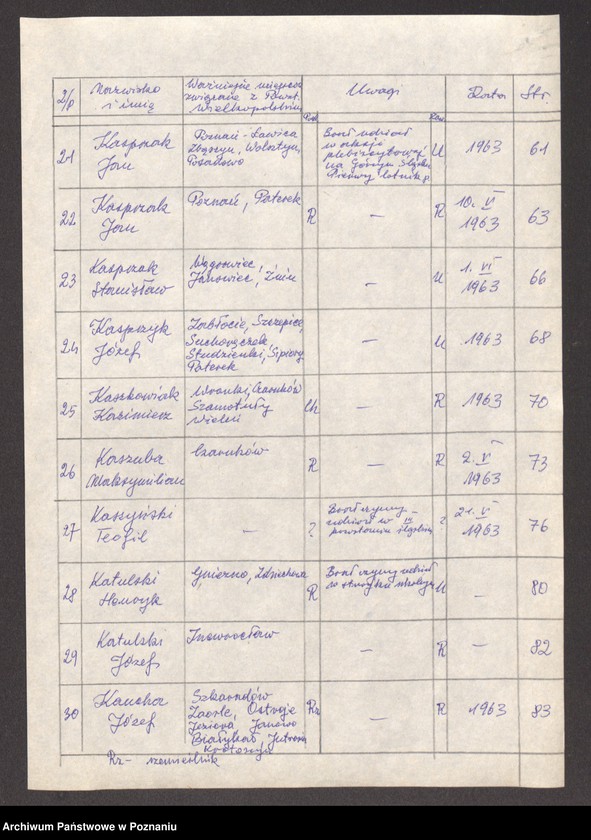 L/p Nazwisko i imię Ważniejsze miejsca związane z Powst. Wielkopolskim Uwagi Data Str.
21 Kasprzak Jan Poznań-Ławica Zbąszyń, Wolsztyn, Brał udział w akcji plebiscytowej na Górnym Śląsku U 1963 61
22 Kasprzak Jan Poznań, Paterek R — R 10. VI 1963 63
23 Kasprzak Stanisław Wągrowiec, Janowiec, Żnin — U 1. VI 1963 66
24 Kasprzyk Józef Zabłocie, Szczepice, Suchoręczek, Studzienki, Paterek — U 1963 68
25 Kaszkowiak Kazimierz Wronki, Czarnków Szamotuły Wieleń — R 1963 70
26 Kaszuba Maksymilian Czarnków R — R 2. V 1963 73
27 Kaszyński Teofil — ? Brał czynny udział w III powstaniu śląskim ? 21. V 1963 76
28 Katulski Henryk Gniezno, Zdziechowa R Brał czynny udział w strajku szkolnym U — 80
29 Katulski Józef Inowrocław — R — 82
30 Kaucha Józef Zaorle, Ostroje Jeziora, Janowo Białykał, Jutrosin Krotoszyn Rz — R 1963 83
Rz - rzemieślnik
Archiwum Państwowe w Poznaniu